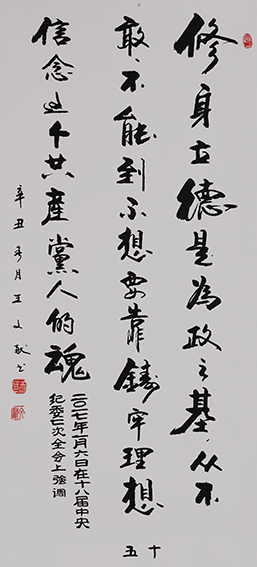 修身立德是為政之基,从不
敢、不能到不想,要靠鑄牢理想
信念这个共產黨人的魂
二〇一七年一月六日在十八届中央
纪委七次全会上強调
辛丑月王文书
十五